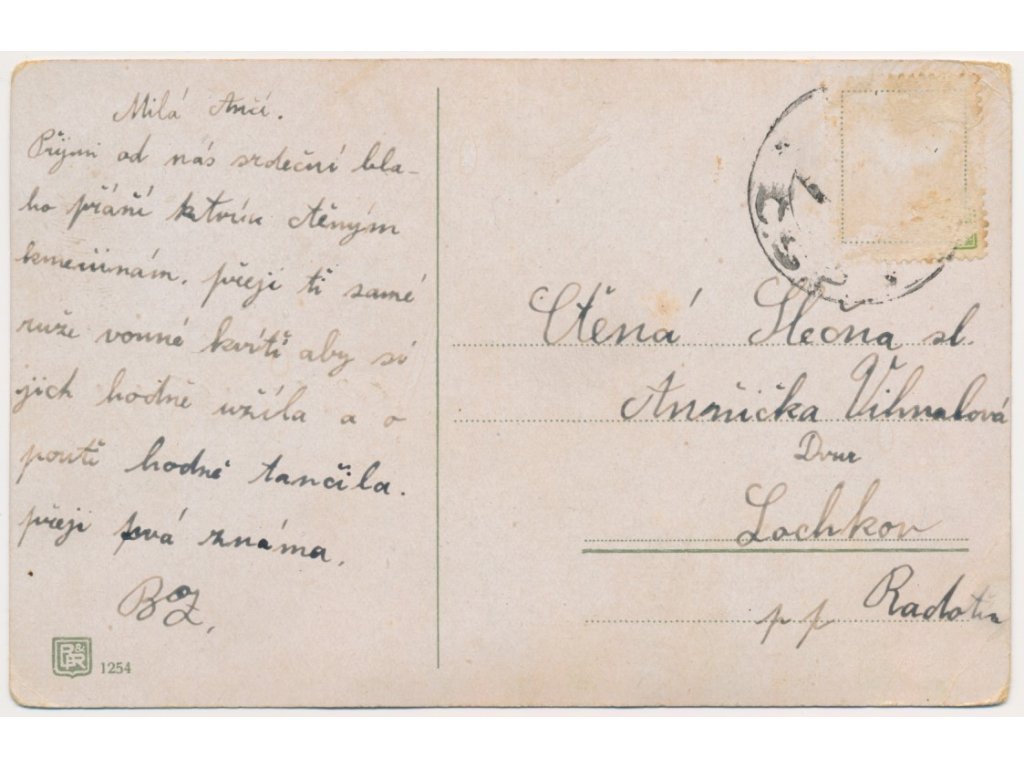 Milá Anči.
Přijmi od nás srdeční bla-
ho přání k tvím ctěným
přeji ti samé
ruže vonné kvítí aby si
jich hodně užila a o
pouti hodně tančila.
přeji tvá známa.
BZ.
P&R
1254
Ctěná Slecna sl.
Anznička Vihnalová
Dvur
Lochkov
pp Radotin